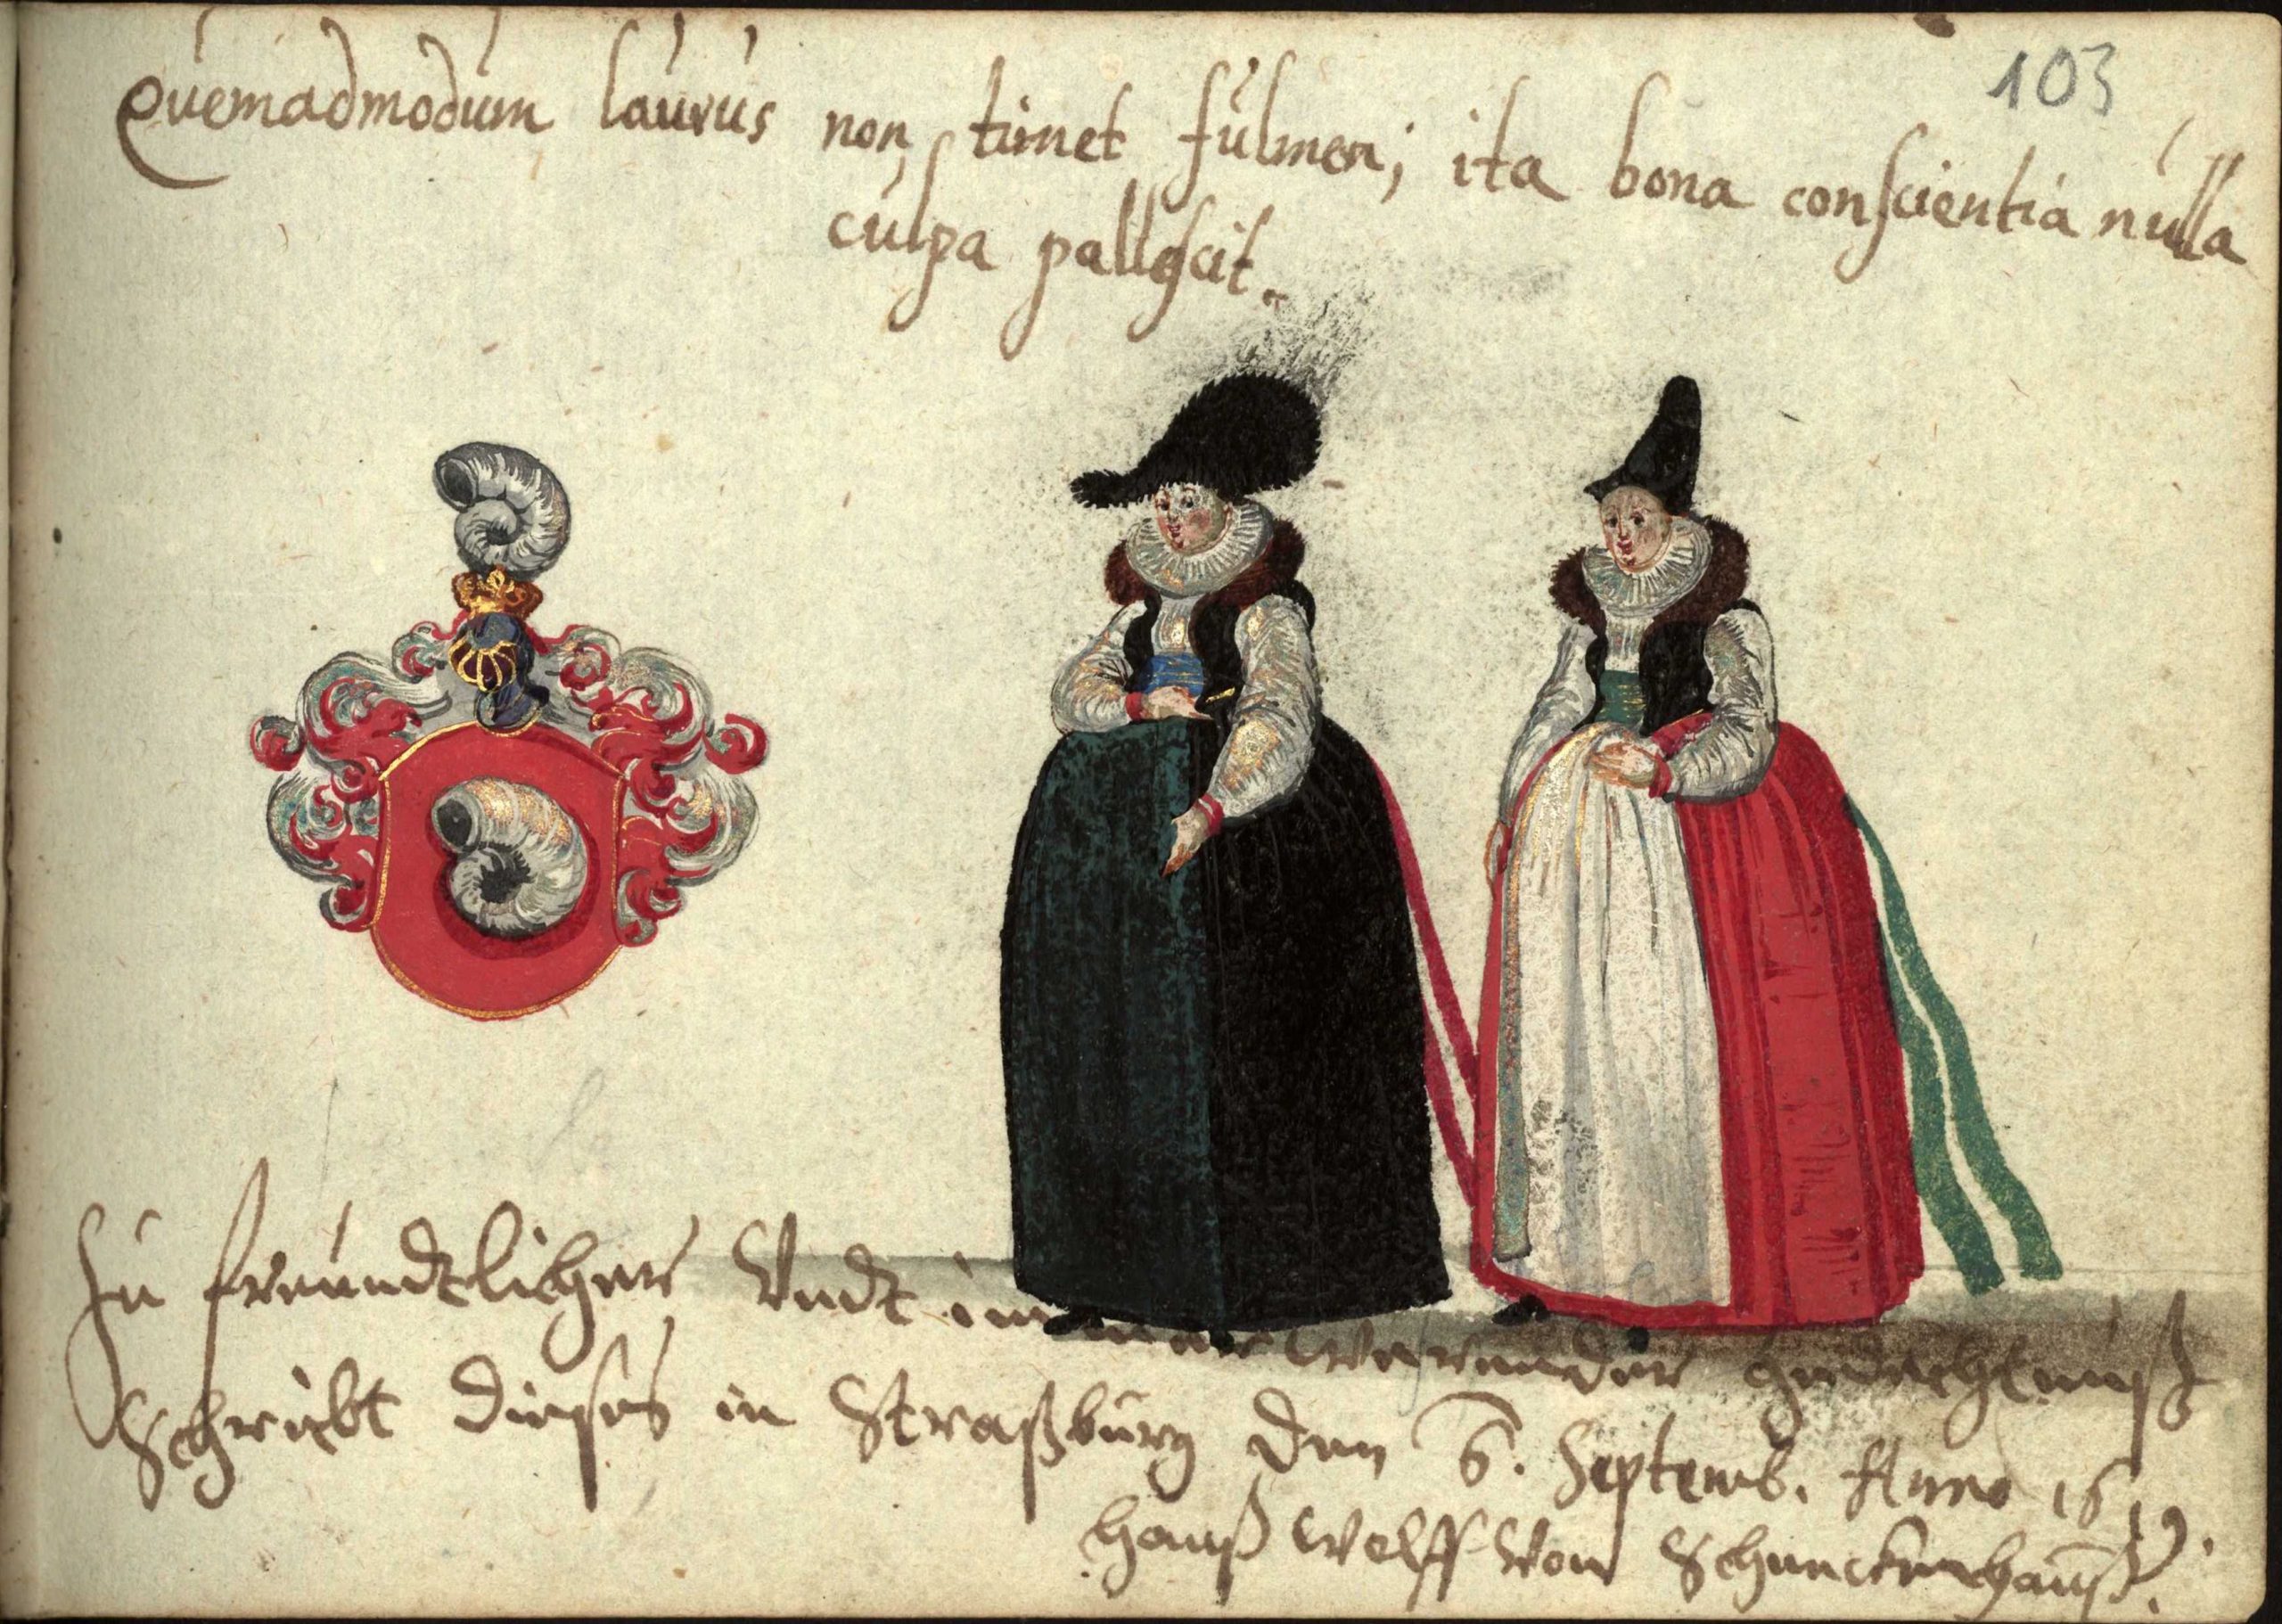 103
Quemadmodum laurus non timet fulmen; ita bona conscientia nulla
culpa pallescit.
Zu freundtlicher Undt immer werender gedechtnuß
Schriebt dieses in Straßburg den 6. Septemb. Anno 16
Hanß Wolff Von Schneckenhauß.